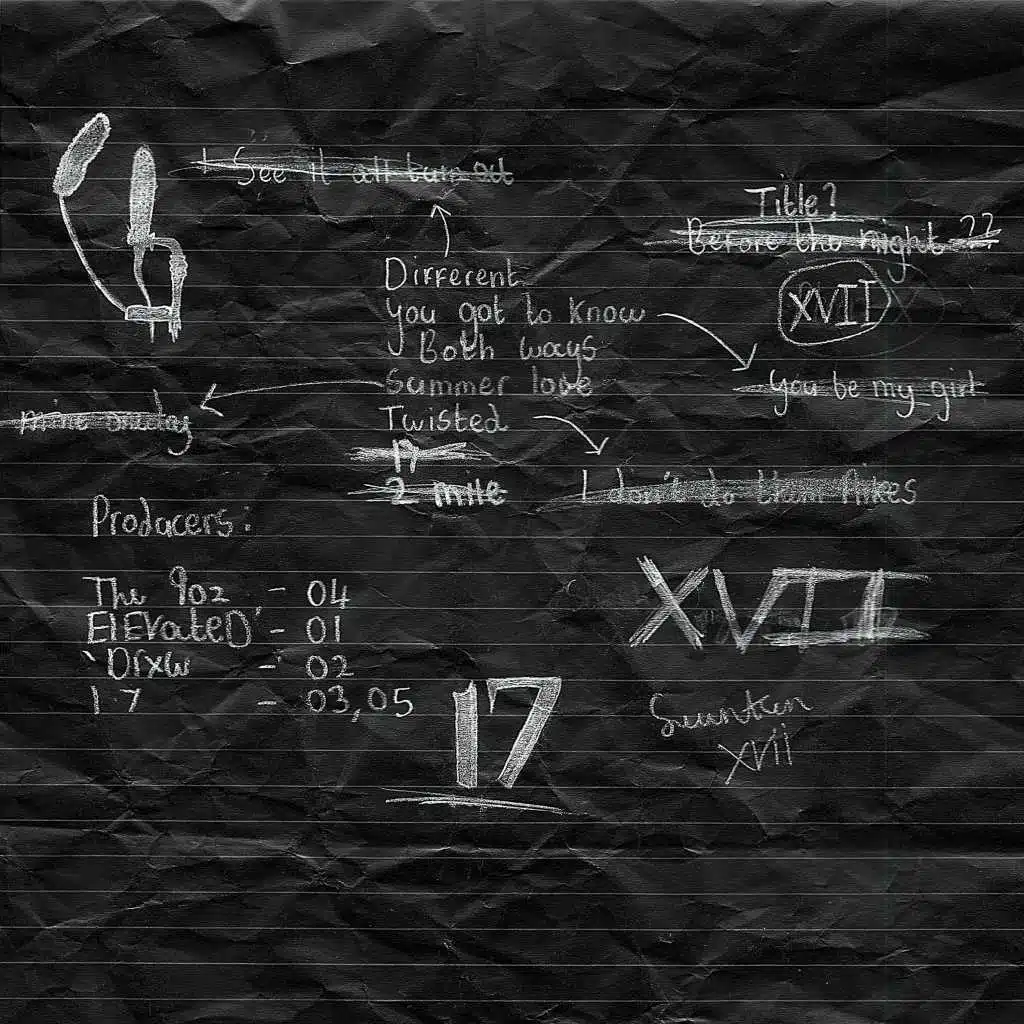 I See it all turn out
Title?
Before the night ??
XVII
Different.
You got to know
Both ways
Summer love
Twisted
17
2 mile
You be my girl
mine oneday
I don't do them Nikes
Producers:
The 90z - 04
ElEvateD' - 01
`Drxw - 02
1.7 - 03,05
XVII
17
xvii